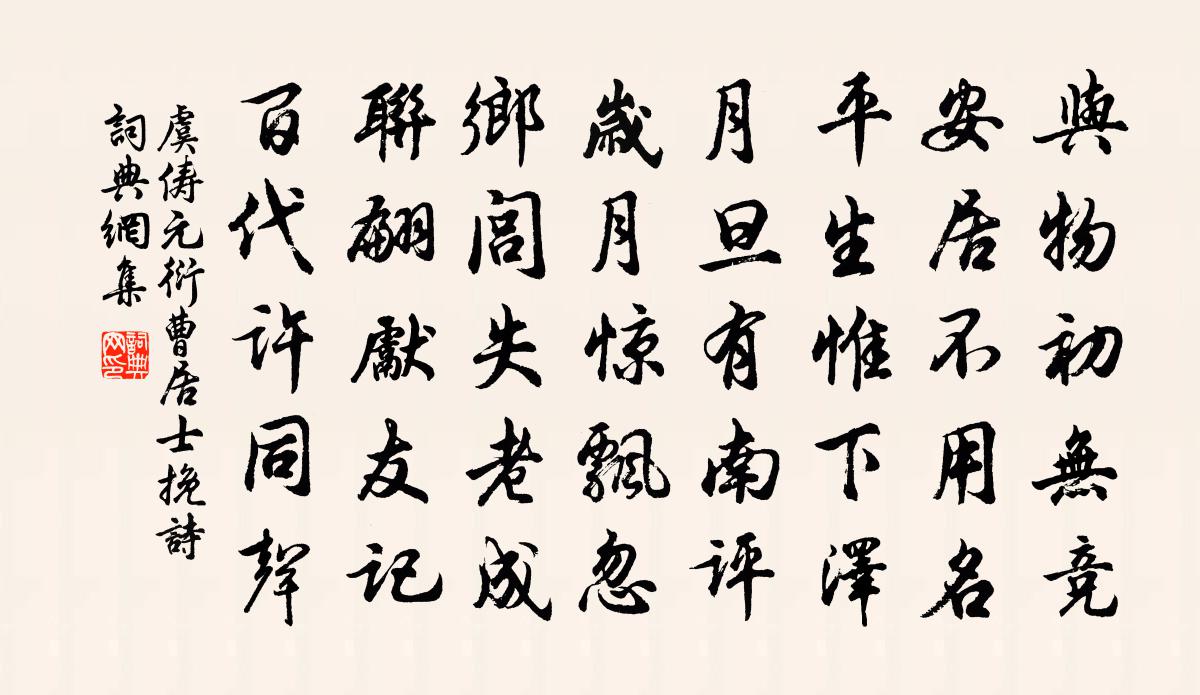 與物初無競
安居不用名
平生惟下澤
月旦有南評
歲月惊飄忽
鄉閭失老成
聯翩獻友記
百代許同聲
虞儔元衍曹居士挽詩
詞典網集
詞典网印